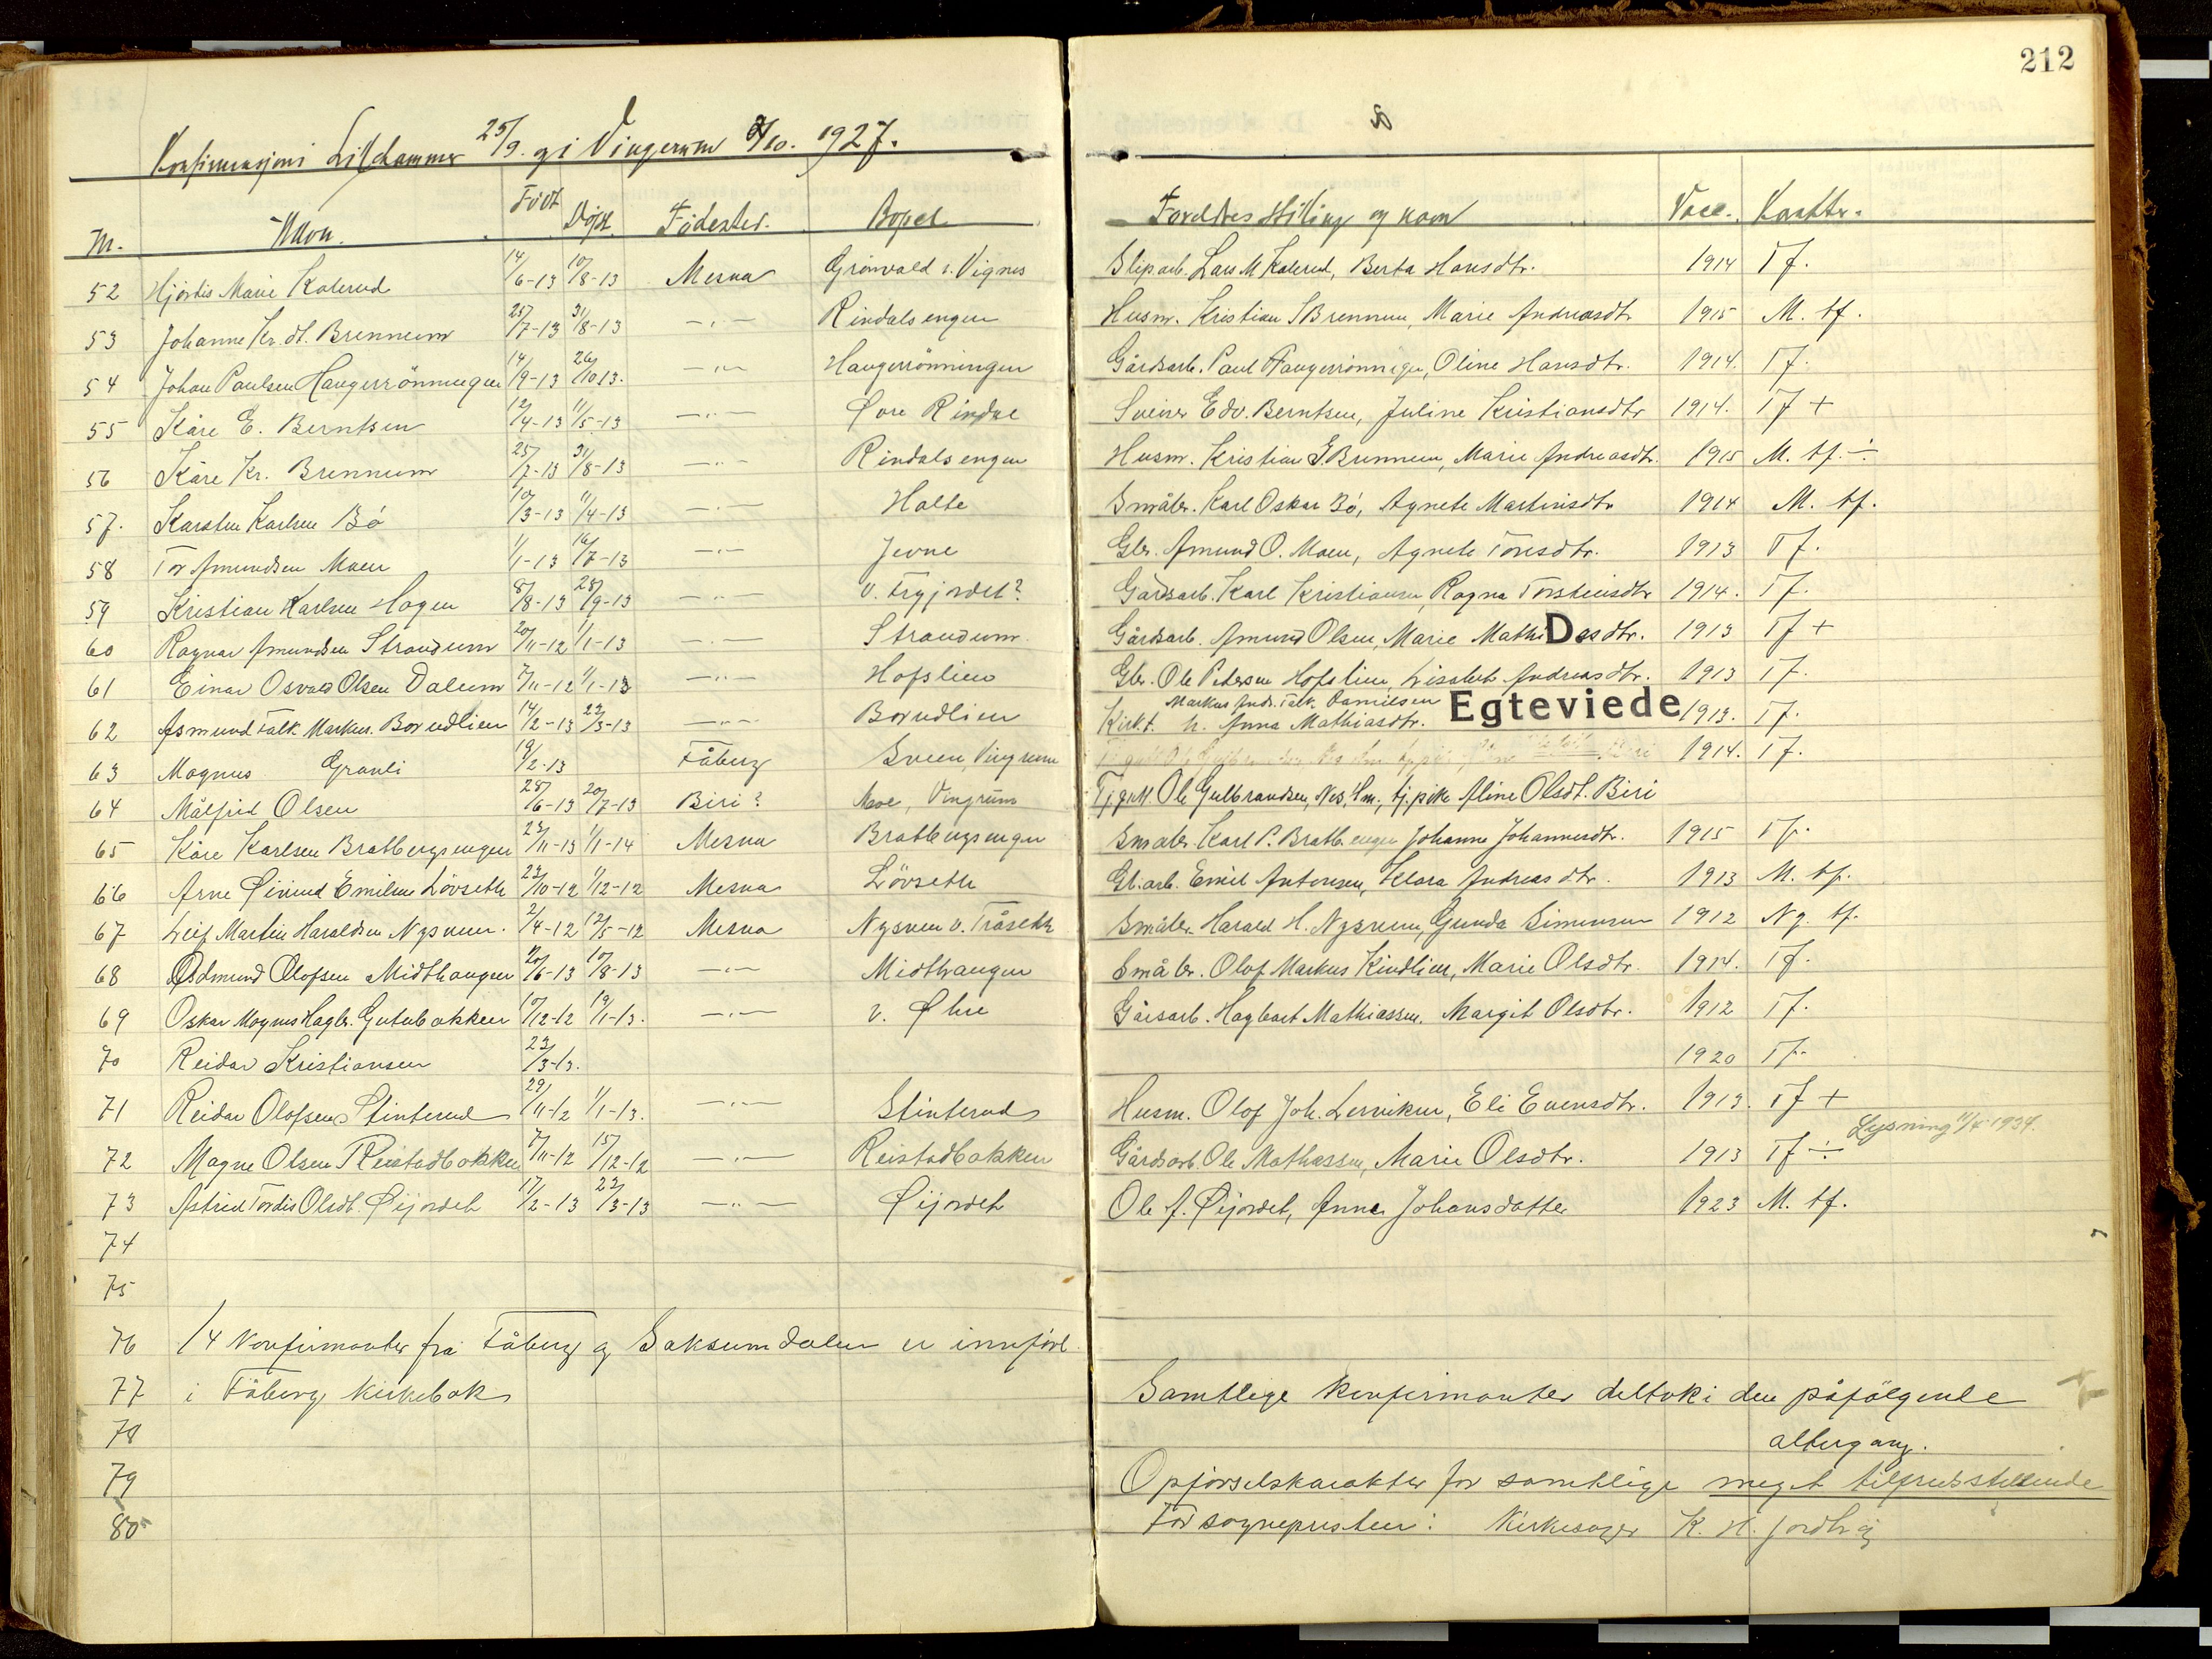 212
Konfirmasjon i Lillehammer 25/9. og i Vingerum 2/10. 1927.
Nr. Navn. Født Døpt. Fødested. Bopel. Foreldres stilling og navn Vacc. Karakter.
52 Hjørdis Marie Kalerud 14/6-13 10/8-13 Mesna Grönvald v. Vignes Sliparb. Lars M Kalerud, Berta Hansdtr. 1914 Tf.
53 Johanne Kr. dt. Brennum 25/7-13 31/8-13 —„— Rindalsengen Husm. Kristian S Brennum, Marie Andreasdtr 1915 M. tf.
54 Johan Paulsen Haugerrönningen 14/9-13 26/10 13. —„— Haugerrönningen Gårdsarb. Paul Haugerrönningen, Oline Hansdtr. 1914. Tf.
55 Kåre E. Berntsen 12/4-13 11/5-13 —„— Øvre Rindal Sveiser Edv. Berntsen, Juline Kristiansdtr 1914. Tf +
56 Kåre Kr. Brennum 25/7-13 31/8-13 —„— Rindalsengen Husm. Kristian S. Brennum, Marie Andreasdtr. 1915 M. tf. ÷
57. Karsten Karlsen Bö 10/3-13 11/4-13 —„— Holte Småbr. Karl Oskar Bö, Agnete Martinsdtr 1914 M. tf.
58 Tor Amundsen Moen 1/1-13 16/7-13 —„— Jevne Gbr. Amund O. Moen, Agnete Toresdtr. 1913 Tf.
59 Kristian Karlsen Hagen 8/8-13 28/9-13 —„— v. Trygjordet? Gårdsarb. Karl Kristiansen, Ragna Torsteinsdtr 1914. Tf.
60 Ragnar Amundsen Strandum 20/11-12 1/1-13 —„— Strandum Gårdsarb. Amund Olsen, Marie Mathi D sdtr. 1913 Tf +
61 Einar Osvald Olsen Dalum 7/11-12 1/1-13 —„— Hofslien Gbr. Ole Pedersen Hofslien, Lisabet Andreasdtr. 1913 Tf.
Markus Andr. Falk. Danielsen Egteviede
62 Asmund Falk. Markus. Borudlien 14/2-13 23/3-13 —„— Borudlien Kirkt. h. Anna Mathiasdtr. 1913. Tf.
63 Magnus Granli 19/2-13 Fåberg Sveen, Vingrum 1914. Tf.
64 Målfrid Olsen 28/6-13 20/7-13 Biri? Moe, Vingrum Tj.gutt Ole Gulbrandsen, Nes, Hm., tj.pike Aline Olsdt. Biri
65 Kåre Karlsen Bratbergsengen 23/11-13 1/1-14 Mesna Bratbergsengen Småbr. Karl P. Bratb.engen Johanne Johannesdtr. 1915 Tf.
66 Arne Øivind Emilsen Lövseth 23/10-12 1/12-12 Mesna Lövseth Gl.arb. Emil Antonsen, Klara Andreasdtr. 1913 M. tf.
67 Leif Martin Haraldsen Nysveen. 2/4-12 12/5-12 Mesna Nysveen v. Tråseth Småbr. Harald H. Nysveen, Gunda Simensen 1912 Ng. tf.
68 Odmund Olofsen Midthaugen 20/6-13 10/8-13 —„— Midthaugen Småbr. Olof Markus Kindlien, Marie Olsdtr. 1914. Tf.
69 Oskar Magnus Hagb. Guterbakken 10/12-12 19/1-13. —„— v. Øhre Gårsarb. Hagbart Mathiassen. Margit Olsdtr. 1912 Tf.
70 Reidar Kristiansen 23/3-13. 1920 Tf.
71 Reidar Olofsen Stinterud 29/11-12 1/1-13. —„— Stinterud Husm. Olof Joh. Lerviken, Eli Evensdtr. 1913. Tf +
Lysning 11/4-1934.
72 Magne Olsen Reistadbakken 7/11-12 15/12-12 —„— Reistadbakken Gårdsarb. Ole Mathiassen, Marie Olsdtr. 1913 Tf ÷
73 Astrid Tordis Olsdt. Öijordet 17/2-13 23/3-13 —„— Öijordet Ole A. Öijordet, Anne Johansdatter 1923 M. tf.
74
75
76 14 konfirmanter fra Fåberg og Saksumdalen er innfört
77 i Fåberg kirkebok Samtlige konfirmanter deltok i den påfölgende
78 altergang.
79 Opførselskarakter for samtlige meget tilfredsstillende
80 For sogneprsten: Kirkesanger K. H.